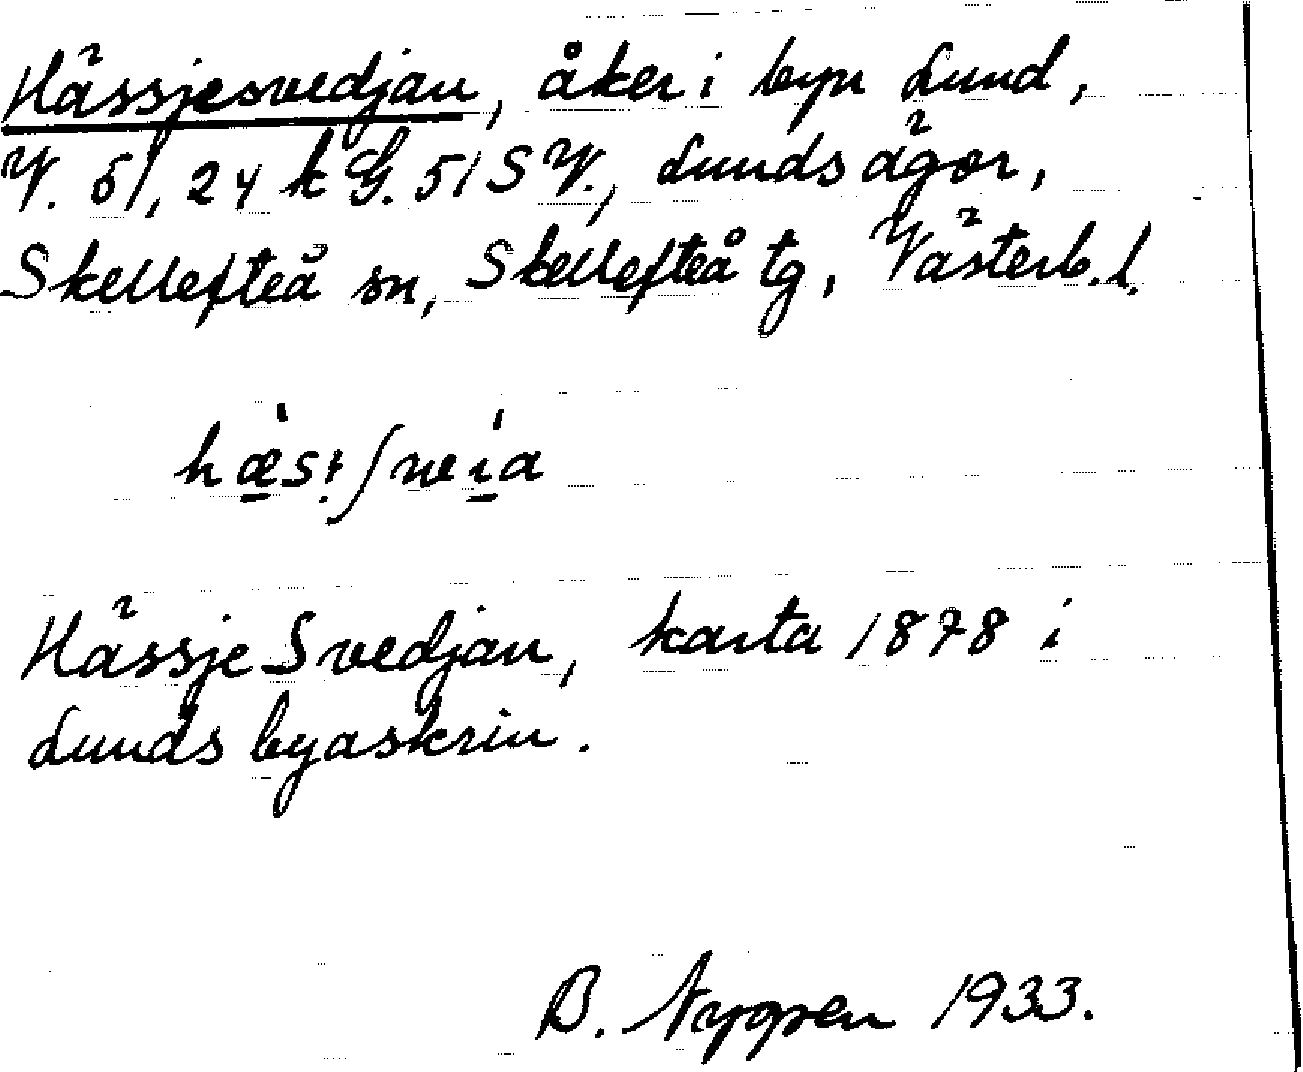 Hässjesvedjan, åker i byn Lund,
V. 51, 24 k G. 51 SV., Lunds ägor,
Skellefteå sn, Skellefteå tg, Västerb. l.
Hässje Svedjan, karta 1878 i
Lunds byaskrin.
B. Nygren 1933.